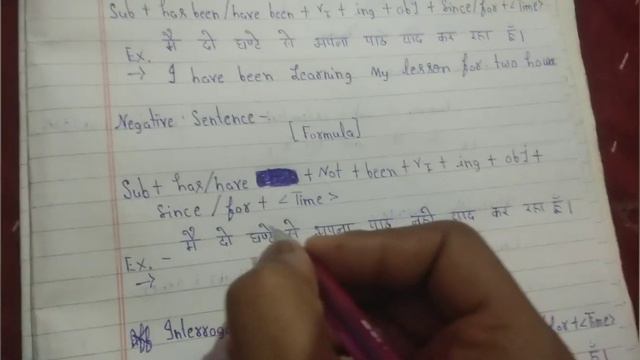 Sub + has been/have been + V1 + ing + obj + Since/for + <Time>
Ex. मैं दो घण्टे से अपना पाठ याद कर रहा हूँ।
→ I have been Learning My lesson for two hours
Negative Sentence -
[Formula]
Sub + has/have + Not + been + V1 + ing + obj +
Since / for + <Time>
Ex. - मैं दो घण्टे से अपना पाठ नही याद कर रहा हूँ।
→
Interrog for + <Time>